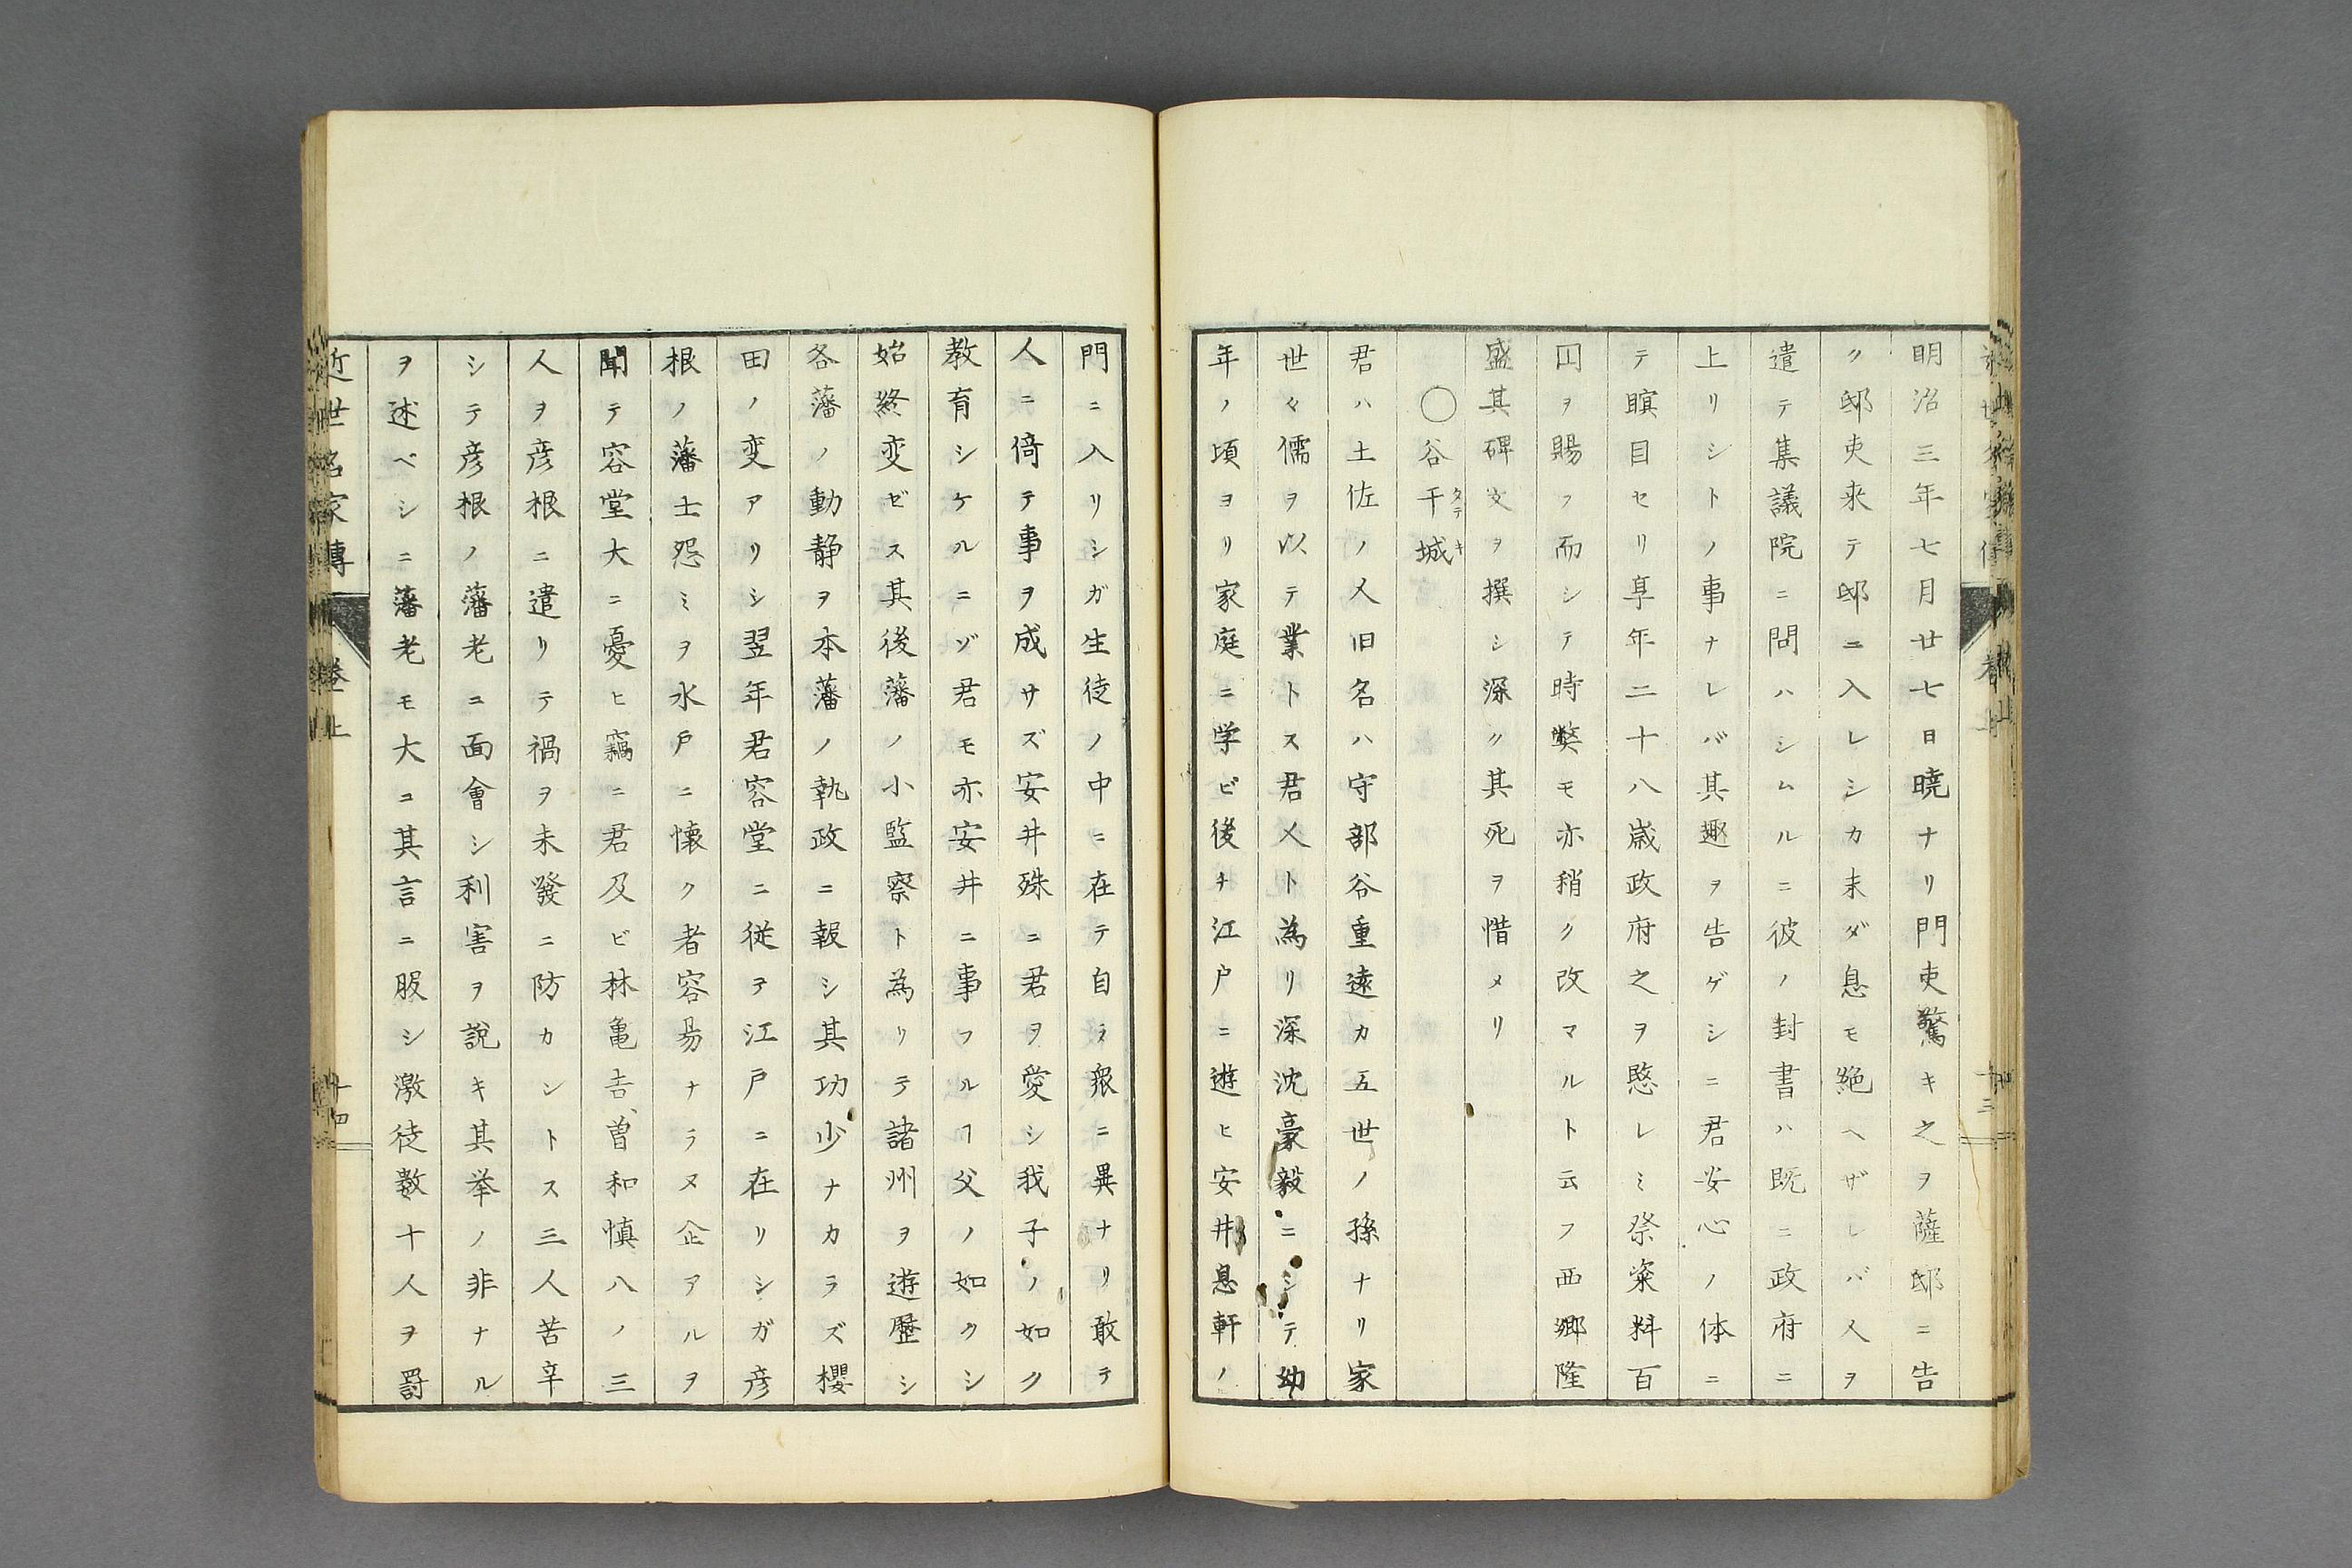 明治三年七月廿七日曉ナリ門吏驚キ之ヲ薩邸ニ告
ク邸吏来テ邸ニ入レシカ未ダ息モ絶ヘザレバ人ヲ
遣テ集議院ニ問ハシムルニ彼ノ封書ハ既ニ政府ニ
上リシトノ事ナレバ其趣ヲ告ゲシニ君安心ノ体ニ
テ瞑目セリ享年二十八歳政府之ヲ愍レミ祭粢料百
円ヲ賜フ而シテ時弊モ亦稍ク改マルト云フ西郷隆
盛其碑文ヲ撰シ深ク其死ヲ惜メリ
○谷干城
タテキ
君ハ土佐ノ人旧名ハ守部谷重遠カ五世ノ孫ナリ家
世々儒ヲ以テ業トス君人ト為リ深沈豪毅ニシテ幼
年ノ頃ヨリ家庭ニ学ビ後チ江戸ニ遊ヒ安井息軒ノ
門ニ入リシガ生徒ノ中ニ在テ自ラ衆ニ異ナリ敢テ
人ニ倚テ事ヲ成サズ安井殊ニ君ヲ愛シ我子ノ如ク
教育シケルニゾ君モ亦安井ニ事フルヿ父ノ如クシ
始終変ゼス其後藩ノ小監察ト為リテ諸州ヲ遊歴シ
各藩ノ動静ヲ本藩ノ執政ニ報シ其功少ナカラズ櫻
田ノ変アリシ翌年君容堂ニ従テ江戸ニ在リシガ彦
根ノ藩士怨ミヲ水戸ニ懐ク者容易ナラヌ企アルヲ
聞テ容堂大ニ憂ヒ竊ニ君及ビ林亀吉曽和慎八ノ三
人ヲ彦根ニ遣リテ禍ヲ未發ニ防カントス三人苦辛
シテ彦根ノ藩老ニ面會シ利害ヲ説キ其挙ノ非ナル
ヲ述ベシニ藩老モ大ニ其言ニ服シ激徒数十人ヲ罸
近世名家傳 巻上 十四